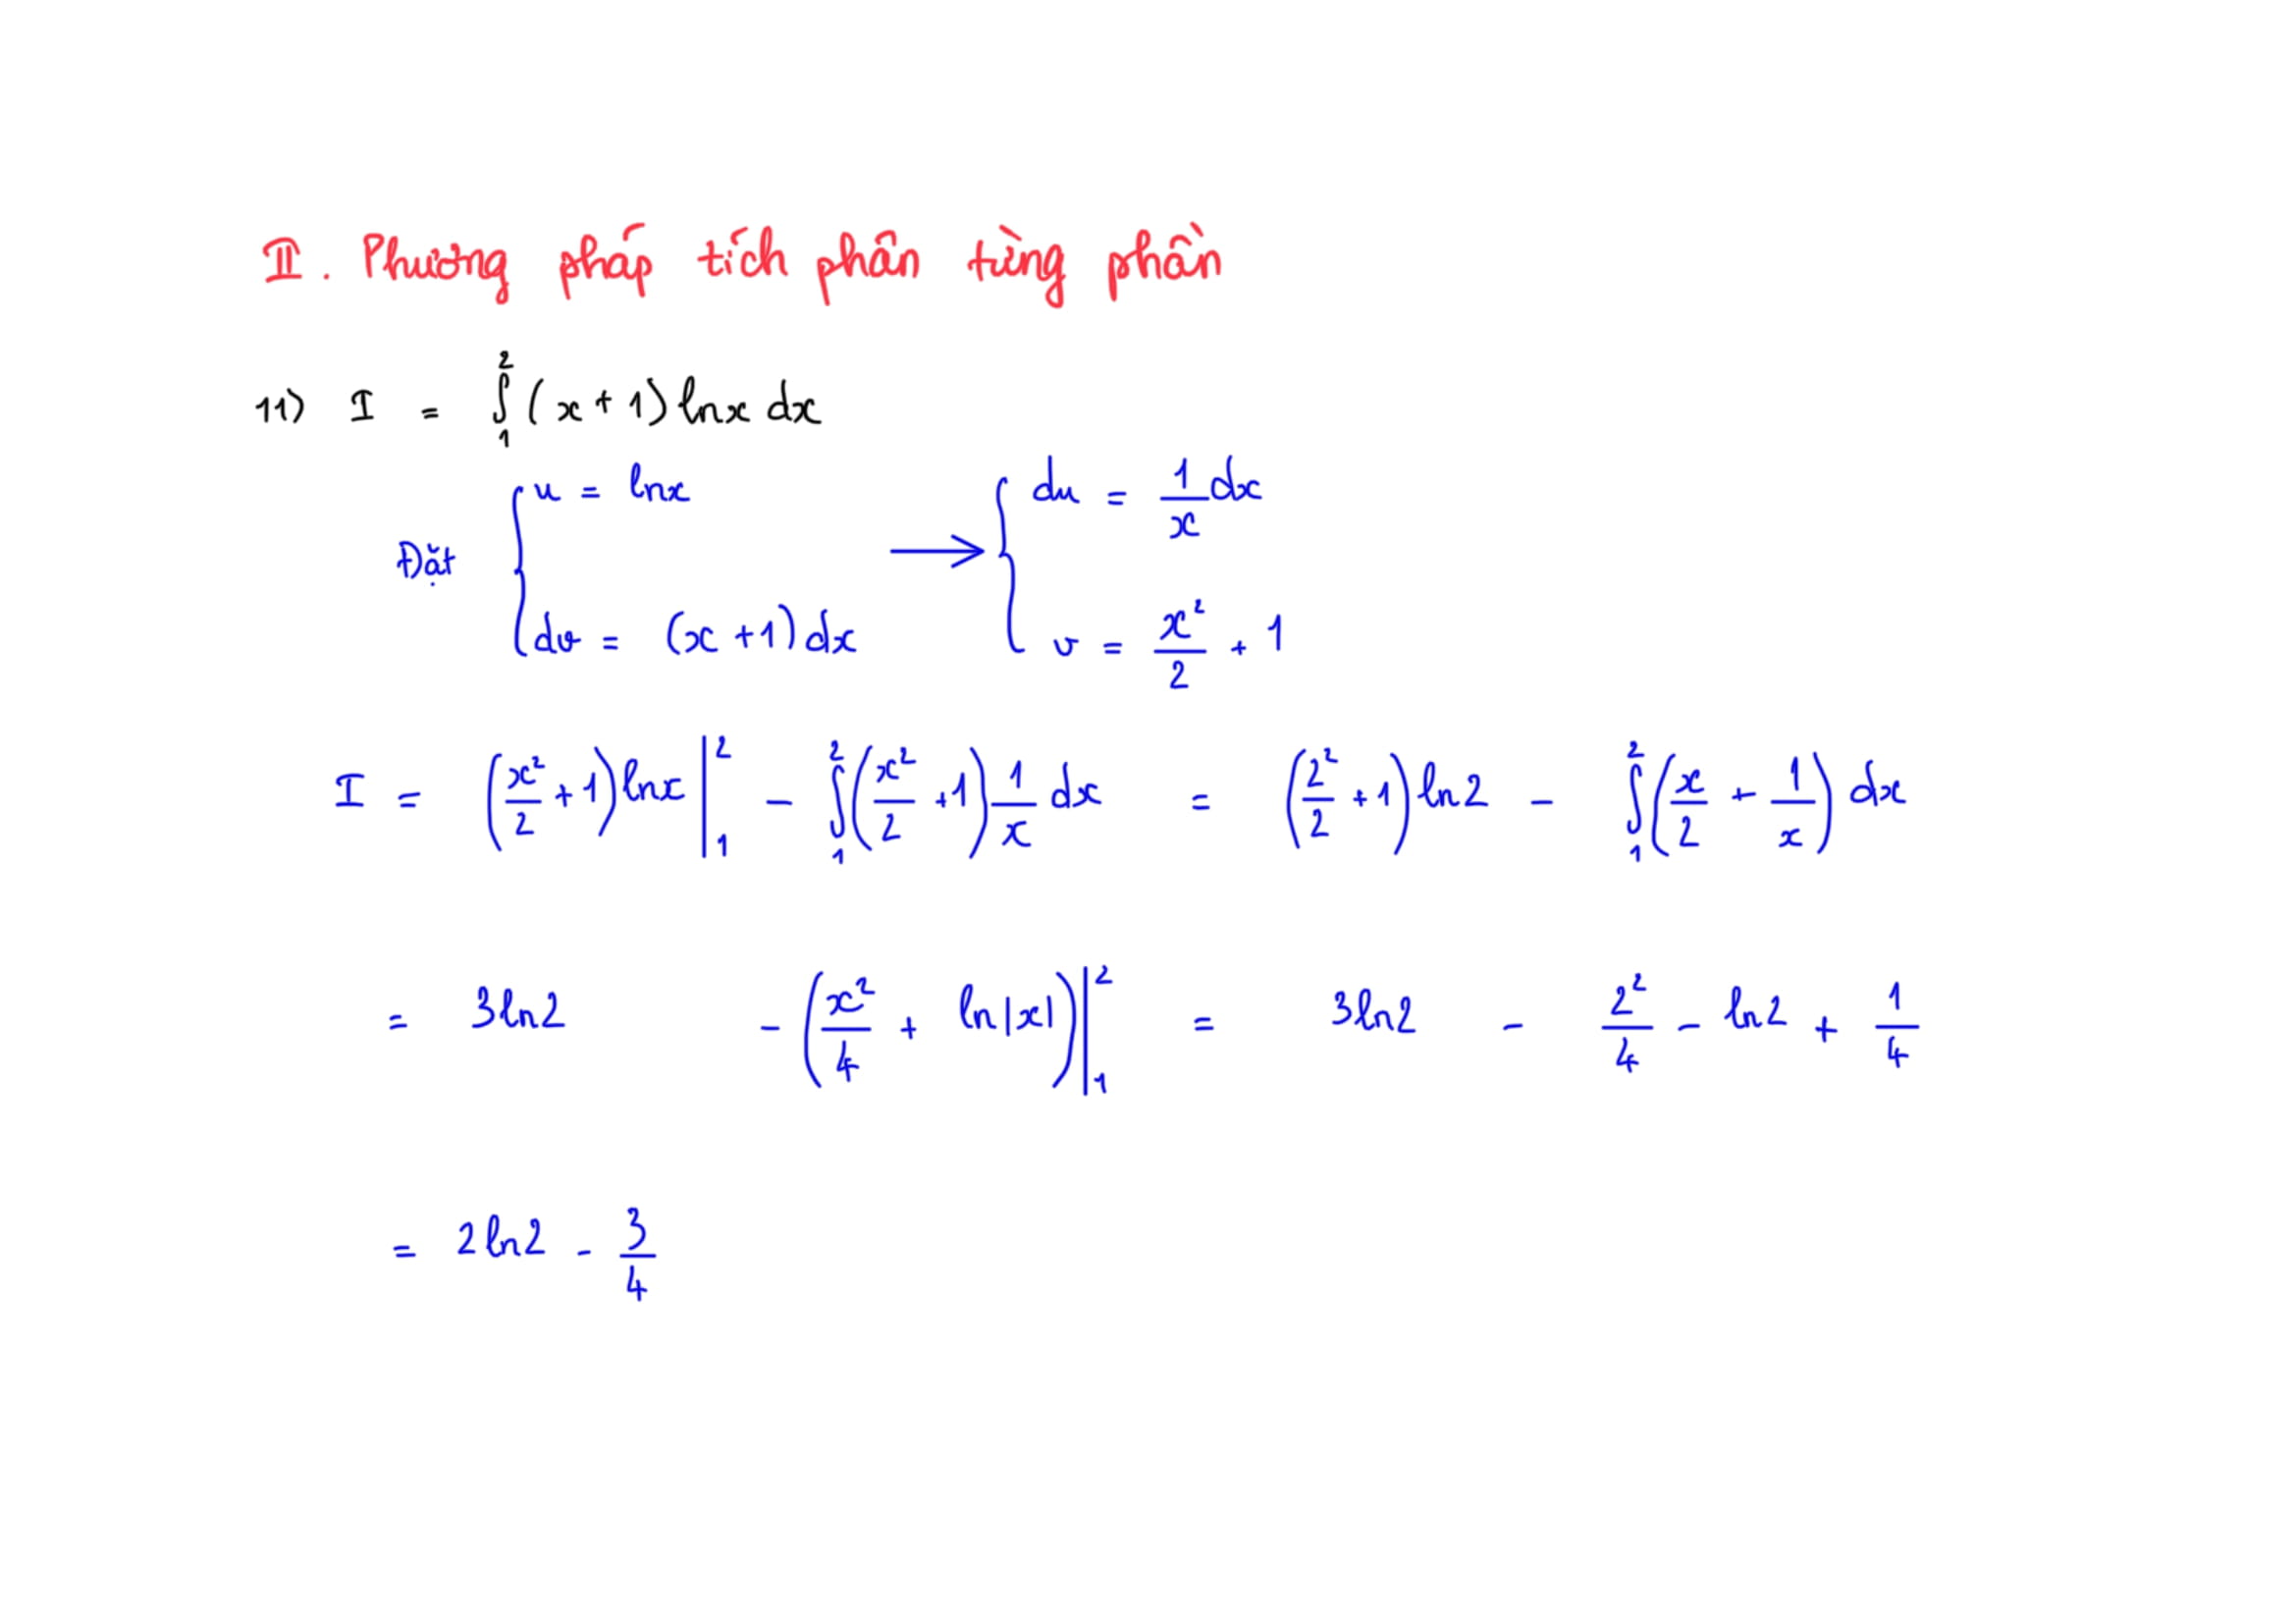 II. Phương pháp tích phân từng phần
11) I = ∫₁² (x + 1) lnx dx
Đặt { u = lnx ; dv = (x + 1) dx ⟶ { du = 1/x dx ; v = x²/2 + 1
I = (x²/2 + 1) lnx |₁² − ∫₁² (x²/2 + 1) 1/x dx = (2²/2 + 1) ln2 − ∫₁² (x/2 + 1/x) dx
= 3ln2 − (x²/4 + ln|x|) |₁² = 3ln2 − 2²/4 − ln2 + 1/4
= 2ln2 - 3/4